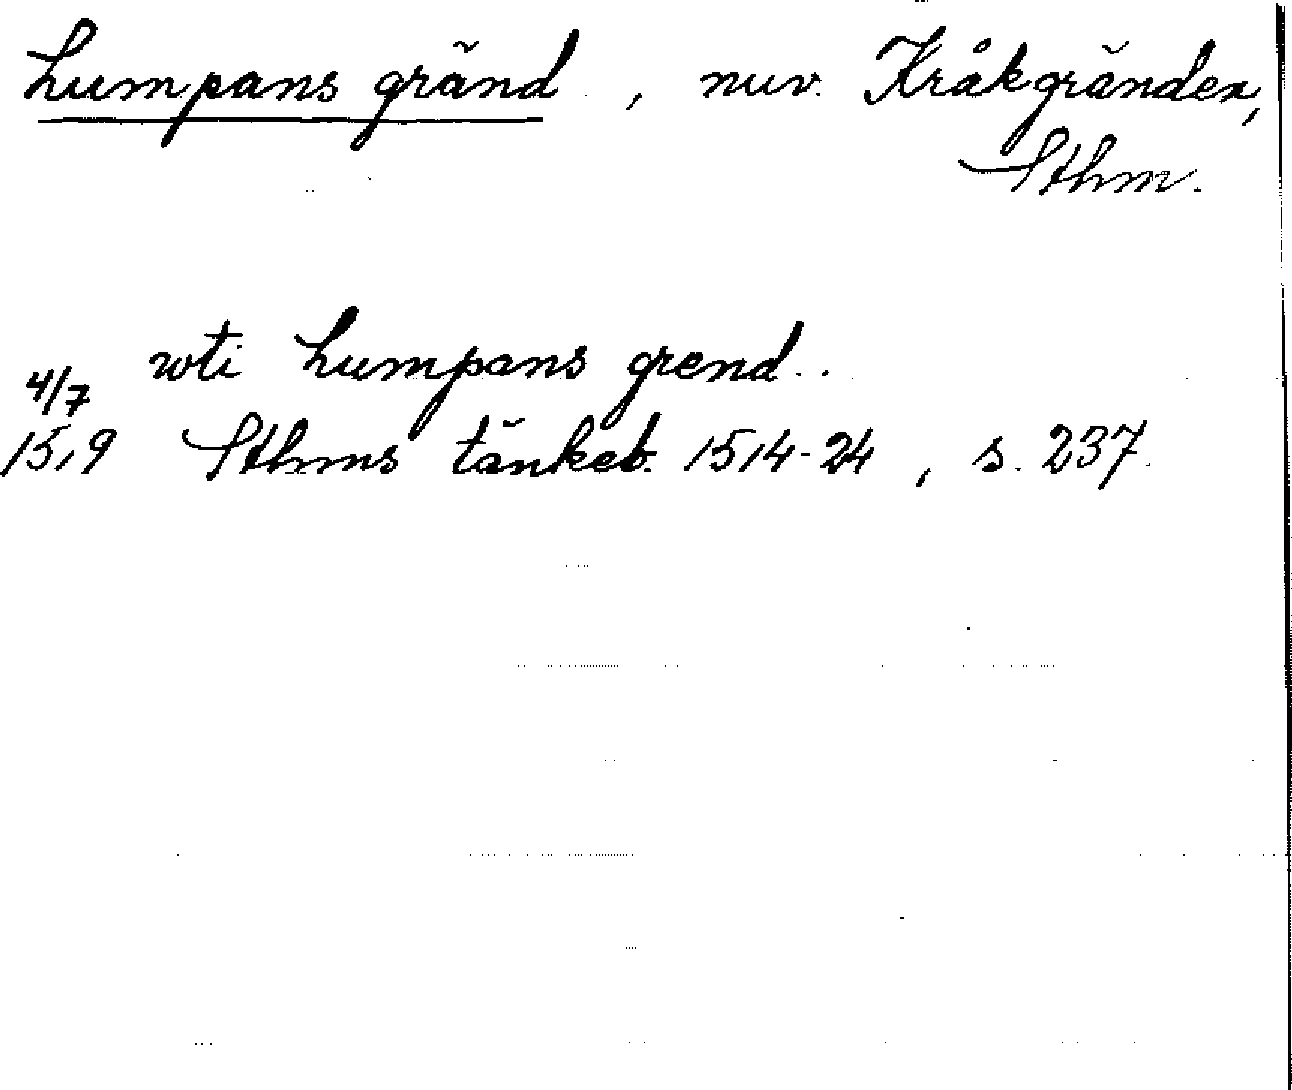 Lumpans gränd, nuv. Kråkgränden,
Sthm.
wti Lumpans grend..
4/7
1519 Sthms tänkeb. 1514-24, s. 237.